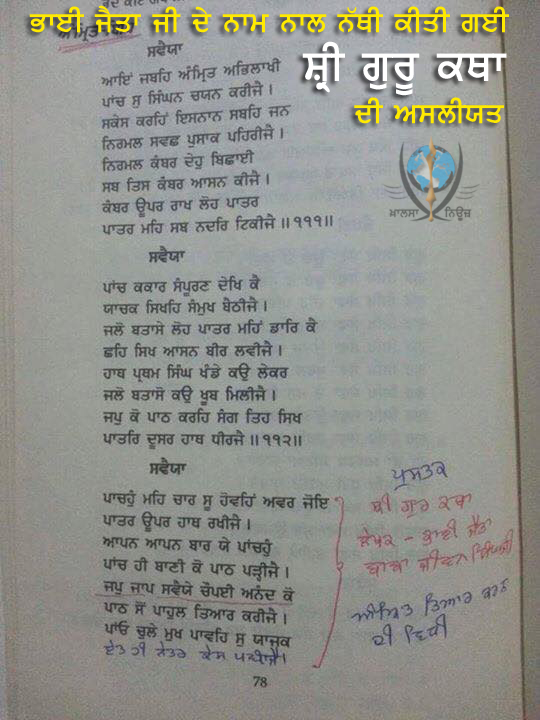 ਭਾਈ ਜੈਤਾ ਜੀ ਦੇ ਨਾਮ ਨਾਲ ਨੱਥੀ ਕੀਤੀ ਗਈ
ਸ਼੍ਰੀ ਗੁਰੂ ਕਥਾ
ਦੀ ਅਸਲੀਯਤ
ਖ਼ਾਲਸਾ ਨਿਊਜ਼
ਸਵੈਯਾ
ਆਇਂ ਜਬਹਿ ਅੰਮ੍ਰਿਤ ਅਭਿਲਾਖੀ
ਪਾਂਚ ਸੁ ਸਿੰਘਨ ਚਯਨ ਕਰੀਜੈ ।
ਸਕੇਸ ਕਰਹਿੰ ਇਸਨਾਨ ਸਬਹਿ ਜਨ
ਨਿਰਮਲ ਸਵਛ ਪੁਸਾਕ ਪਹਿਰੀਜੈ ।
ਨਿਰਮਲ ਕੰਬਰ ਦੇਹੁ ਬਿਛਾਈ
ਸਬ ਤਿਸ ਕੰਬਰ ਆਸਨ ਕੀਜੈ ।
ਕੰਬਰ ਊਪਰ ਰਾਖ ਲੋਹ ਪਾਤਰ
ਪਾਤਰ ਮਹਿ ਸਬ ਨਦਰਿ ਟਿਕੀਜੈ ॥੧੧੧॥
ਸਵੈਯਾ
ਪਾਂਚ ਕਕਾਰ ਸੰਪੂਰਣ ਦੇਖਿ ਕੈ
ਯਾਚਕ ਸਿਖਹਿ ਸੰਮੁਖ ਬੇਠੀਜੈ ।
ਜਲੋ ਬਤਾਸੇ ਲੋਹ ਪਾਤਰ ਮਹਿੰ ਡਾਰਿ ਕੈ
ਛਹਿ ਸਿਖ ਆਸਨ ਬੀਰ ਲਵੀਜੈ ।
ਹਾਥ ਪ੍ਰਥਮ ਸਿੰਘ ਖੰਡੇ ਕਉ ਲੇਕਰ
ਜਲੋ ਬਤਾਸੋ ਕਉ ਖੂਬ ਮਿਲੀਜੈ ।
ਜਪੁ ਕੋ ਪਾਠ ਕਰਹਿ ਸੰਗ ਤਿਹ ਸਿਖ
ਪਾਤਰਿ ਦੂਸਰ ਹਾਥ ਧੀਰਜੈ ॥੧੧੨॥
ਸਵੈਯਾ
ਪਾਚਹੁੰ ਮਹਿ ਚਾਰ ਸੂ ਹੋਵਹਿੰ ਅਵਰ ਜੋਇ
ਪਾਤਰ ਊਪਰ ਹਾਥ ਰਖੀਜੈ ।
ਆਪਨ ਆਪਨ ਬਾਰ ਯੇ ਪਾਂਚਹੁੰ
ਪਾਂਚ ਹੀ ਬਾਣੀ ਕੋ ਪਾਠ ਪੜ੍ਹੀਜੈ ।
ਜਪੁ ਜਾਪ ਸਵੈਯੇ ਚੌਪਈ ਅਨੰਦ ਕੋ
ਪਾਠ ਸੋਂ ਪਾਹੁਲ ਤਿਆਰ ਕਰੀਜੈ ।
ਪਾਂਓ ਚੁਲੇ ਮੁਖ ਪਾਵਹਿ ਸੁ ਯਾਜਕ
ਨੇਤਰ ਕੇਸ
ਪੁਸਤਕ
ਸ਼੍ਰੀ ਗੁਰ ਕਥਾ
ਲੇਖਕ - ਭਾਈ ਜੈਤਾ
ਬਾਬਾ ਜੀਵਨ ਸਿੰਘ ਜੀ
ਅੰਮ੍ਰਿਤ ਤਿਆਰ ਕਰਨ
ਦੀ ਵਿਧੀ
78